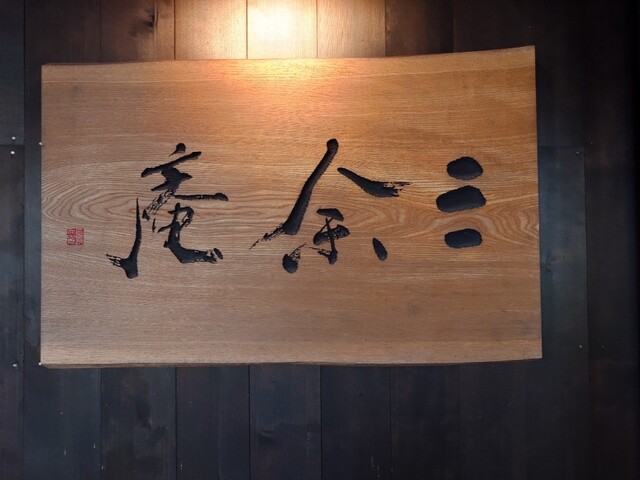 三余庵